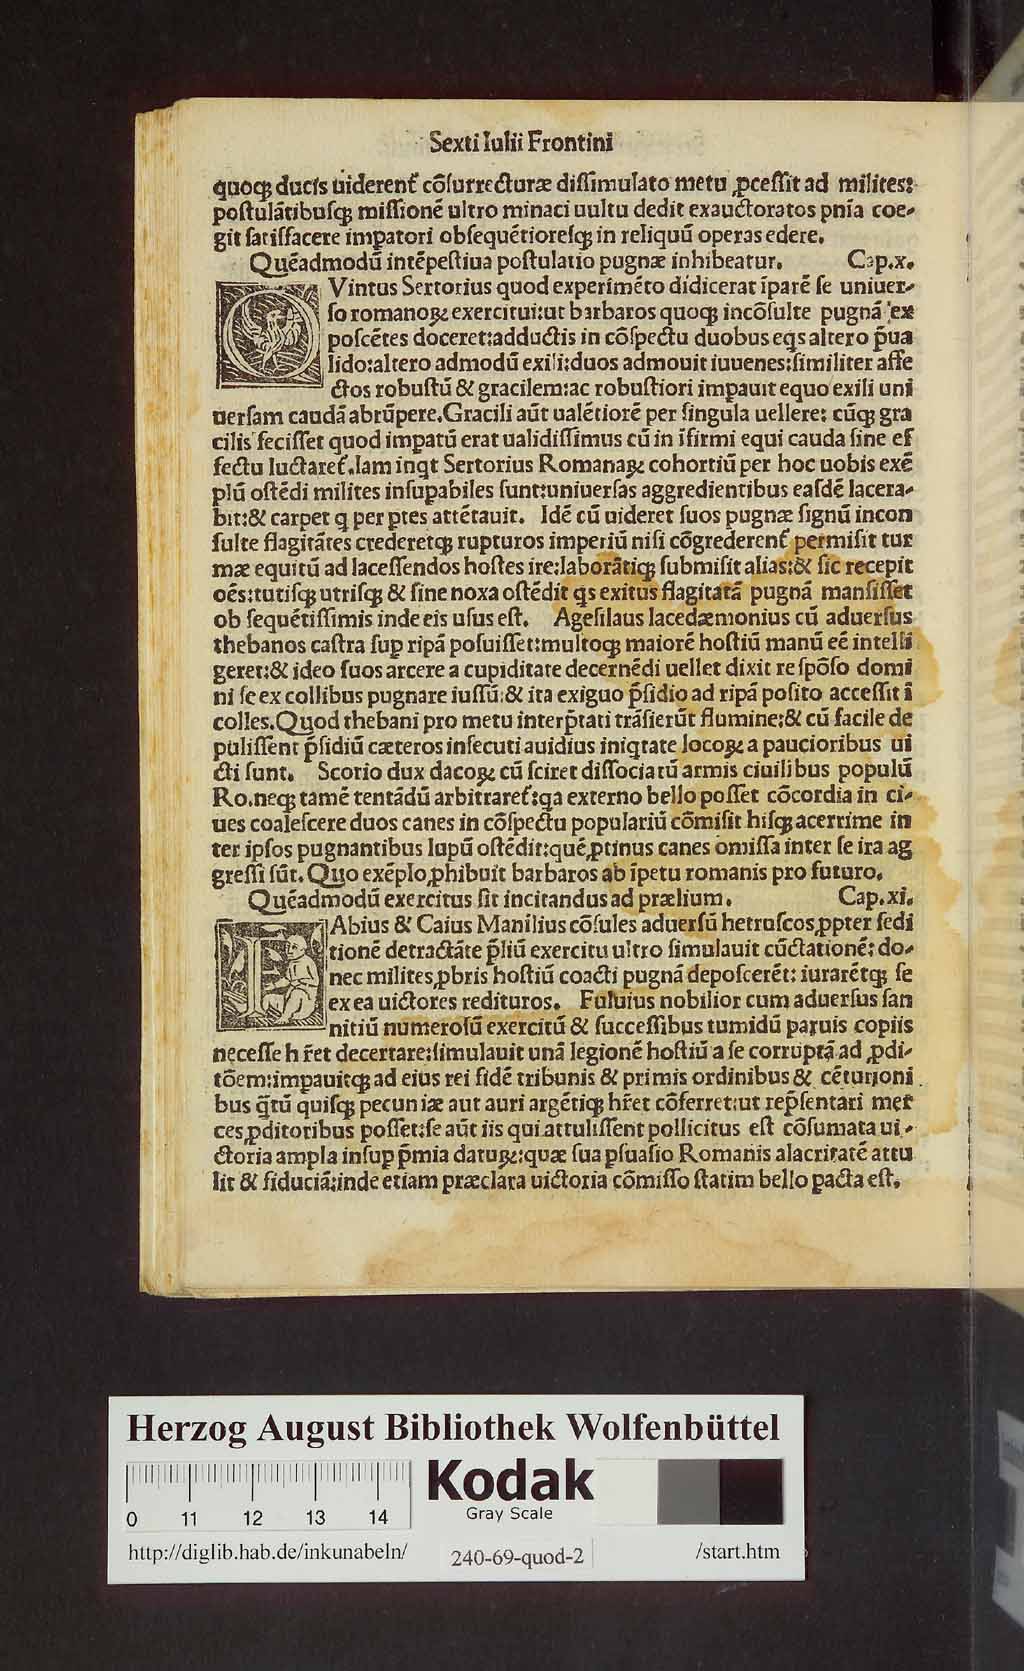 Sexti Iulii Frontini
quoqꝫ ducis uiderent᷑ cōſurrecturæ diſſimulato metu ꝓceſſit ad milites:
poſtulātibuſqꝫ miſſionē ultro minaci uultu dedit exauctoratos pnīa coe-
git ſatiſfacere imꝑatori obſequētioreſqꝫ in reliquū operas edere.
Quēadmodū intēpeſtiua poſtulatio pugnæ inhibeatur. Cap.x.
QVintus Sertorius quod experimēto didicerat īparē ſe uniuer-
ſo romanoꝝ exercitui:ut barbaros quoqꝫ incōſulte pugnā ex
poſcētes doceret:adductis in cōſpectu duobus eqs altero p̄ua
lido:altero admodū exili:duos admouit iuuenes:ſimiliter affe
ctos robuſtū & gracilem:ac robuſtiori imꝑauit equo exili uni
uerſam caudā abrūpere.Gracili aūt ualētiorē per ſingula uellere: cūqꝫ gra
cilis feciſſet quod imꝑatū erat ualidiſſimus cū in īfirmi equi cauda ſine ef
fectu luctaret᷑.Iam inqt Sertorius Romanaꝝ cohortiū per hoc uobis exē
plū oſtēdi milites inſuꝑabiles ſunt:uniuerſas aggredientibus eaſdē lacera-
bit:& carpet q per ꝑtes attētauit. Idē cū uideret ſuos pugnæ ſignū incon
ſulte flagitātes crederetqꝫ rupturos imperiū niſi cōgrederent᷑ permiſit tur
mæ equitū ad laceſſendos hoſtes ire:laborātiqꝫ ſubmiſit alias:& ſic recepit
oēs:tutiſqꝫ utriſqꝫ & ſine noxa oſtēdit qs exitus flagitatā pugnā manſiſſet
ob ſequētiſſimis inde eis uſus eſt. Ageſilaus lacedæmonius cū aduerſus
thebanos caſtra ſuꝑ ripā poſuiſſet:multoqꝫ maiorē hoſtiū manū eē intelli
geret:& ideo ſuos arcere a cupiditate decernēdi uellet dixit re ſpōſo domi
ni ſe ex collibus pugnare iuſſū:& ita exiguo p̄ſidio ad ripā poſito acceſſit ī
colles.Quod thebani pro metu interp̄tati trāſierūt flumine:& cū facile de
puliſſent p̄ſidiū cæteros inſecuti auidius iniqtate locoꝝ a paucioribus ui
cti ſunt. Scorio dux dacoꝝ cū ſciret diſſociatū armis ciuilibus populū
Ro.neqꝫ tamē tentādū arbitraret᷑:qa externo bello poſſet cōcordia in ci-
ues coaleſcere duos canes in cōſpectu populariū cōmiſit hiſqꝫ acerrime in
ter ipſos pugnantibus lupū oſtēdit:quē ꝓtinus canes omiſſa inter ſe ira ag
greſſi ſūt. Quo exēplo ꝓhibuit barbaros ab īpetu romanis pro futuro.
Quēadmodū exercitus ſit incitandus ad prælium. Cap.xi.
FAbius & Caius Manilius cōſules aduerſū hetruſcos ꝓpter ſedi
tionē detractāte p̄liū exercitu ultro ſimulauit cūctationē: do-
nec milites ꝓbris hoſtiū coacti pugnā depoſcerēt: iurarētqꝫ ſe
ex ea uictores redituros. Fuluius nobilior cum aduerſus ſan
nitiū numeroſū exercitū & ſucceſſibus tumidū paruis copiis
neceſſe hr̄et decertare:ſimulauit unā legionē hoſtiū a ſe corruptā ad ꝓdi-
tōem:imꝑauitqꝫ ad eius rei fidē tribunis & primis ordinibus & cēturioni
bus q̄tū quiſqꝫ pecuniæ aut auri argētiqꝫ hr̄et cōferret:ut rep̄ſentari mer
ces ꝓditoribus poſſet:ſe aūt iis qui attuliſſent pollicitus eſt cōſumata ui-
ctoria ampla inſuꝑ p̄mia datuꝝ:quæ ſua ꝑſuaſio Romanis alacritatē attu
lit & fiduciā:inde etiam præclara uictoria cōmiſſo ſtatim bello pacta eſt.
Herzog August Bibliothek Wolfenbüttel
Kodak
Gray Scale
0 11 12 13 14
http://diglib.hab.de/inkunabeln/ 240-69-quod-2 /start.htm